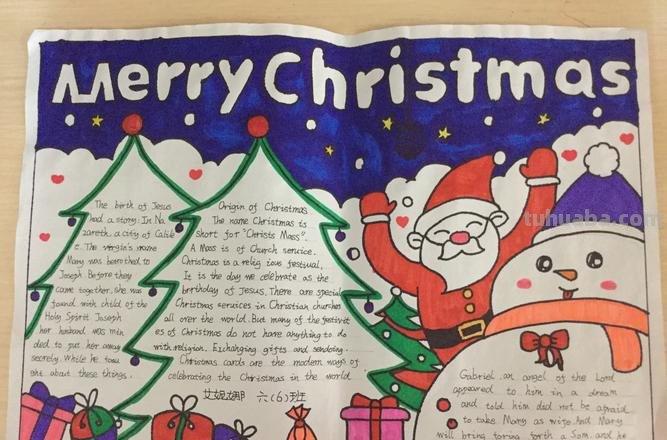 Merry Christmas
The birth of Jesus
had a story: In Na
zareth, a city of Galile
e. The virgin's name
Mary was betrothed to
Joseph Before they
came together, she was
found with child of the
Holy Spirit Joseph
her husband was min
ded to put her away
secretly. While he thou
ght about these things.
Origin of Christmas
The name Christmas is
short for "Christs Mass".
A Mass is of Church service.
Christmas is a relig ious festival,
It is the day we celebrate as the
birthday of Jesus. There are special
Christmas services in Christian churches
all over the world. But many of the festivit
es of Christmas do not have anything to do
with religion. Exchanging gifts and sending
Christmas cards are the modern ways of
celebrating the Christmas in the world
六(6)班
Gabriel, an angel of the Lord
appeared to him in a dream
and told him did not be afraid
to take Mary as wife. And Mary
will bring forth a Son, and he
tuhuaba.com